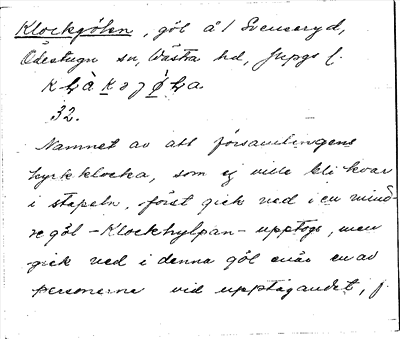 Klockgölen, göl å/ Svenseryd,
Ödestugu sn, Västra hd, Jkpgs l.
32.
Namnet av att församlingens
kyrkklocka, som ej ville bli kvar
i stapeln, först gick ned i en mind-
re göl - Klockhylpan - upptogs, men
gick ned i denna göl när en av
personerna vid upptagandet, f.